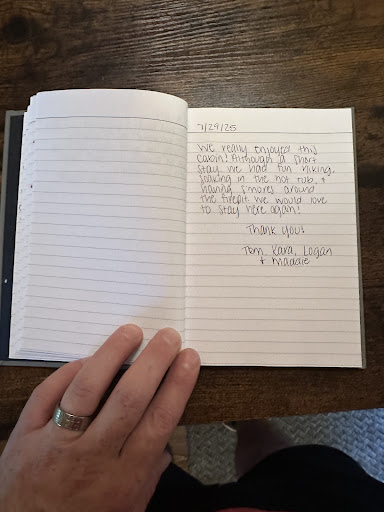 7/29/25
We really enjoyed this
cabin! Although a short
stay we had fun hiking,
soaking in the hot tub, &
having s'mores around
the firepit. We would love
to stay here again!
Thank you!
Tom, Kara, Logan
& Maddie